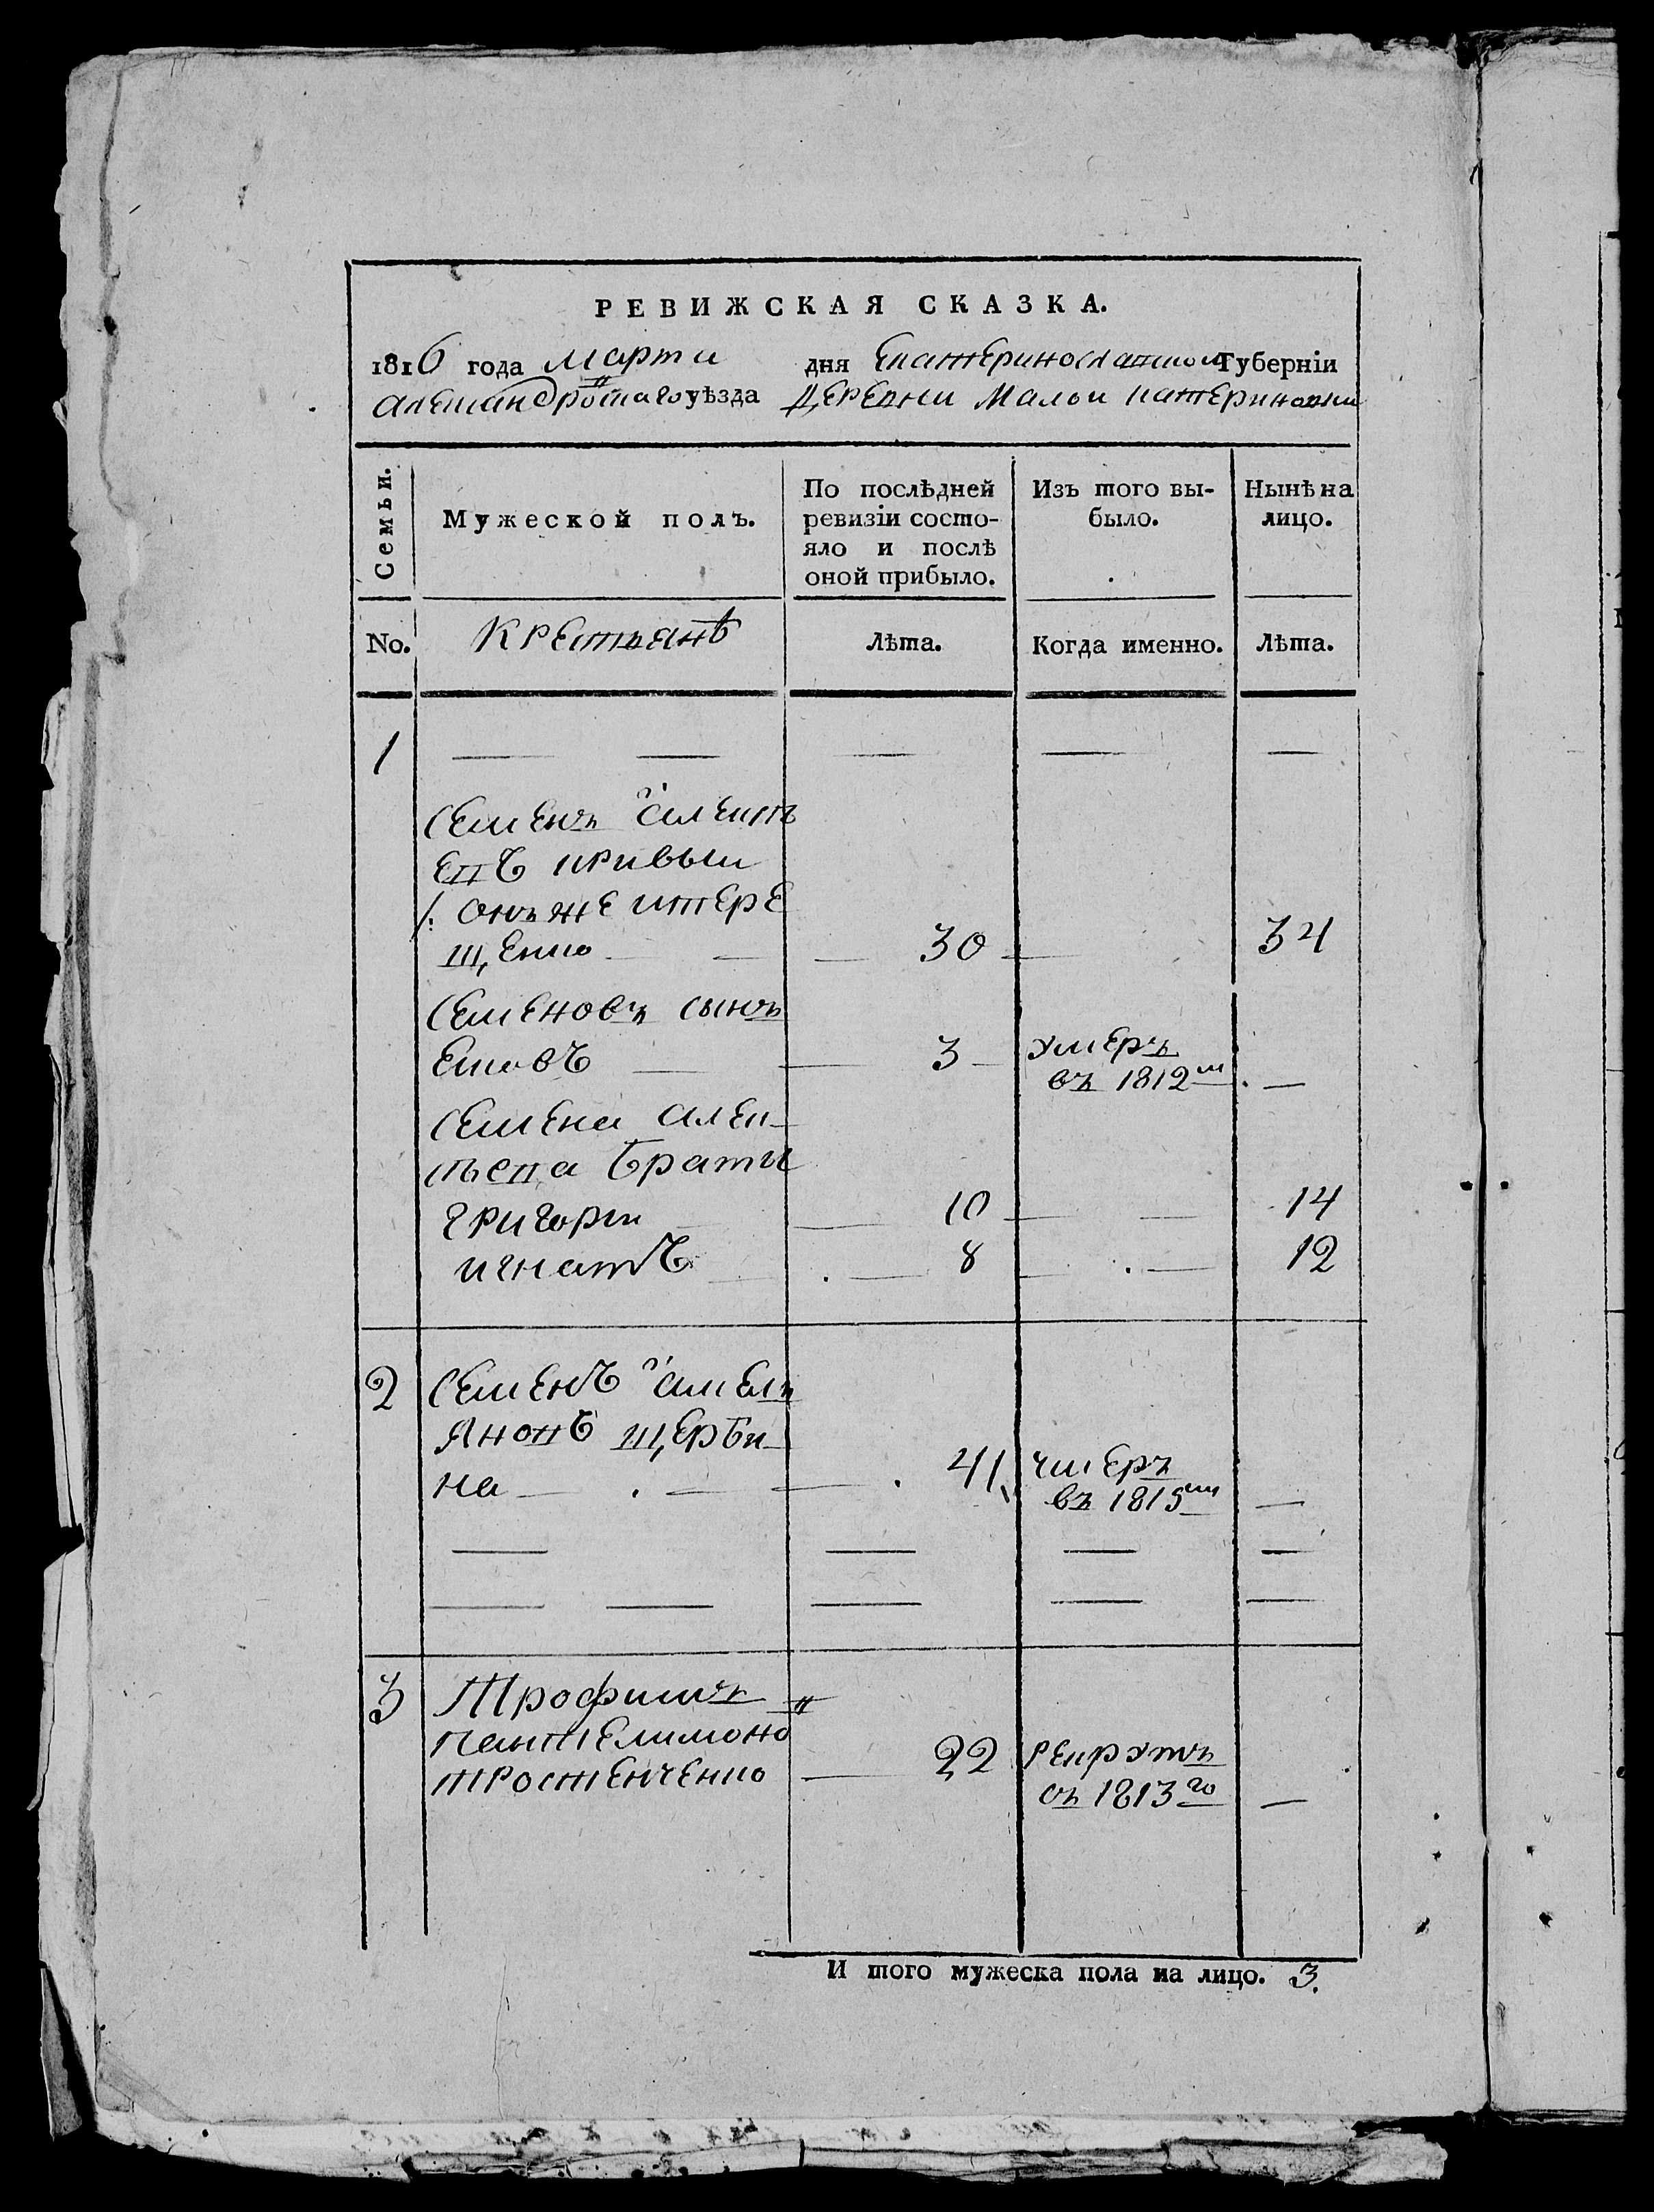 РЕВИЖСКАЯ СКАЗКА.
1816 года марта дня Екатеринославской Губерніи
Александровскаго уѣзда Деревни Малой катериновки
Семьи.
Мужеской полъ.
По послѣдней ревизіи состо-яло и послѣ оной прибыло.
Изъ того вы-было.
Нынѣ на лицо.
No. Крестьянѣ Лѣта. Когда именно. Лѣта.
1
Семенъ Алексѣ
евъ кривыи
/: онъ же
щенко 30 34
Семеновъ сынъ
Яковъ 3 умеръ
въ 1812м
Семена алек
сѣева браты
григори 10 14
игнатъ 8 12
2 Семенъ Амель
яновъ щерби
на 41 умеръ
въ 1815м
3 Трофимъ
пантелимоно
тростенченко 22 рекрутъ
съ 1813го
И того мужеска пола на лицо. 3.